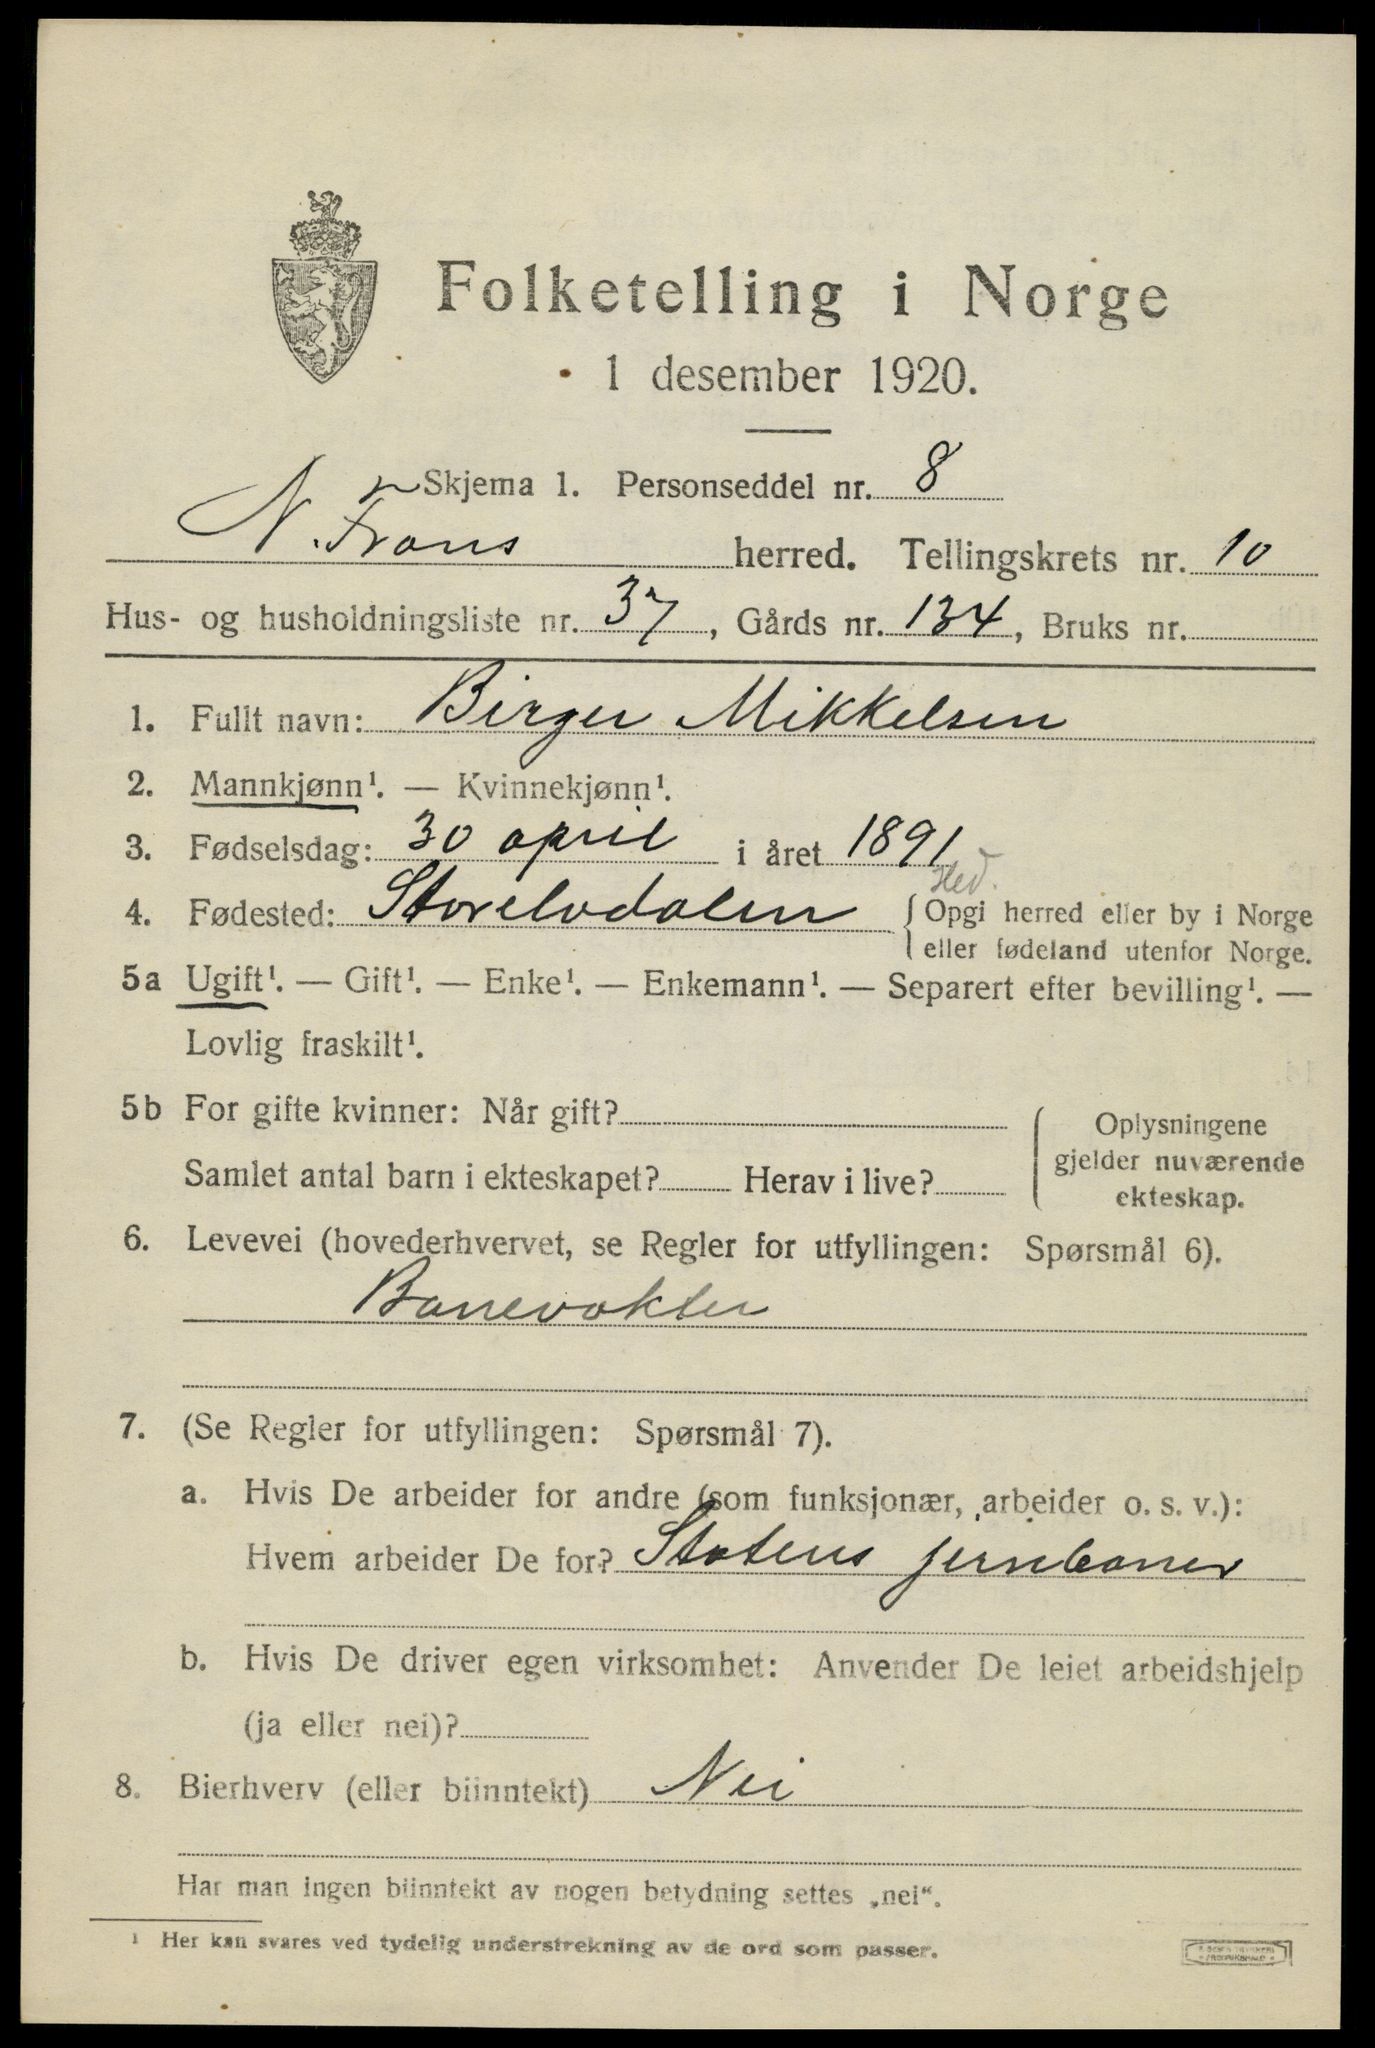 Folketelling i Norge
1 desember 1920.
Skjema 1. Personseddel nr. 8
N. Frons herred. Tellingskrets nr. 10
Hus- og husholdningsliste nr. 37, Gårds nr. 134, Bruks nr.
1. Fullt navn: Birger Mikkelsen
2. Mannkjønn¹. — Kvinnekjønn¹.
3. Fødselsdag: 30 april i året 1891
Hed.
4. Fødested: Storelvdalen { Opgi herred eller by i Norge
eller fødeland utenfor Norge.
5a Ugift¹. — Gift¹. — Enke¹. — Enkemann¹. — Separert efter bevilling¹. —
Lovlig fraskilt¹.
5b For gifte kvinner: Når gift?
Samlet antal barn i ekteskapet? Herav i live?
Oplysningene
gjelder nuværende
ekteskap.
6. Levevei (hovederhvervet, se Regler for utfyllingen: Spørsmål 6).
Banevokter
7. (Se Regler for utfyllingen: Spørsmål 7).
a. Hvis De arbeider for andre (som funksjonær, arbeider o. s. v.):
Hvem arbeider De for? Statens jernbaner
b. Hvis De driver egen virksomhet: Anvender De leiet arbeidshjelp
(ja eller nei)?
8. Bierhverv (eller biinntekt) Nei
Har man ingen biinntekt av nogen betydning settes „nei“.
¹ Her kan svares ved tydelig understrekning av de ord som passer.